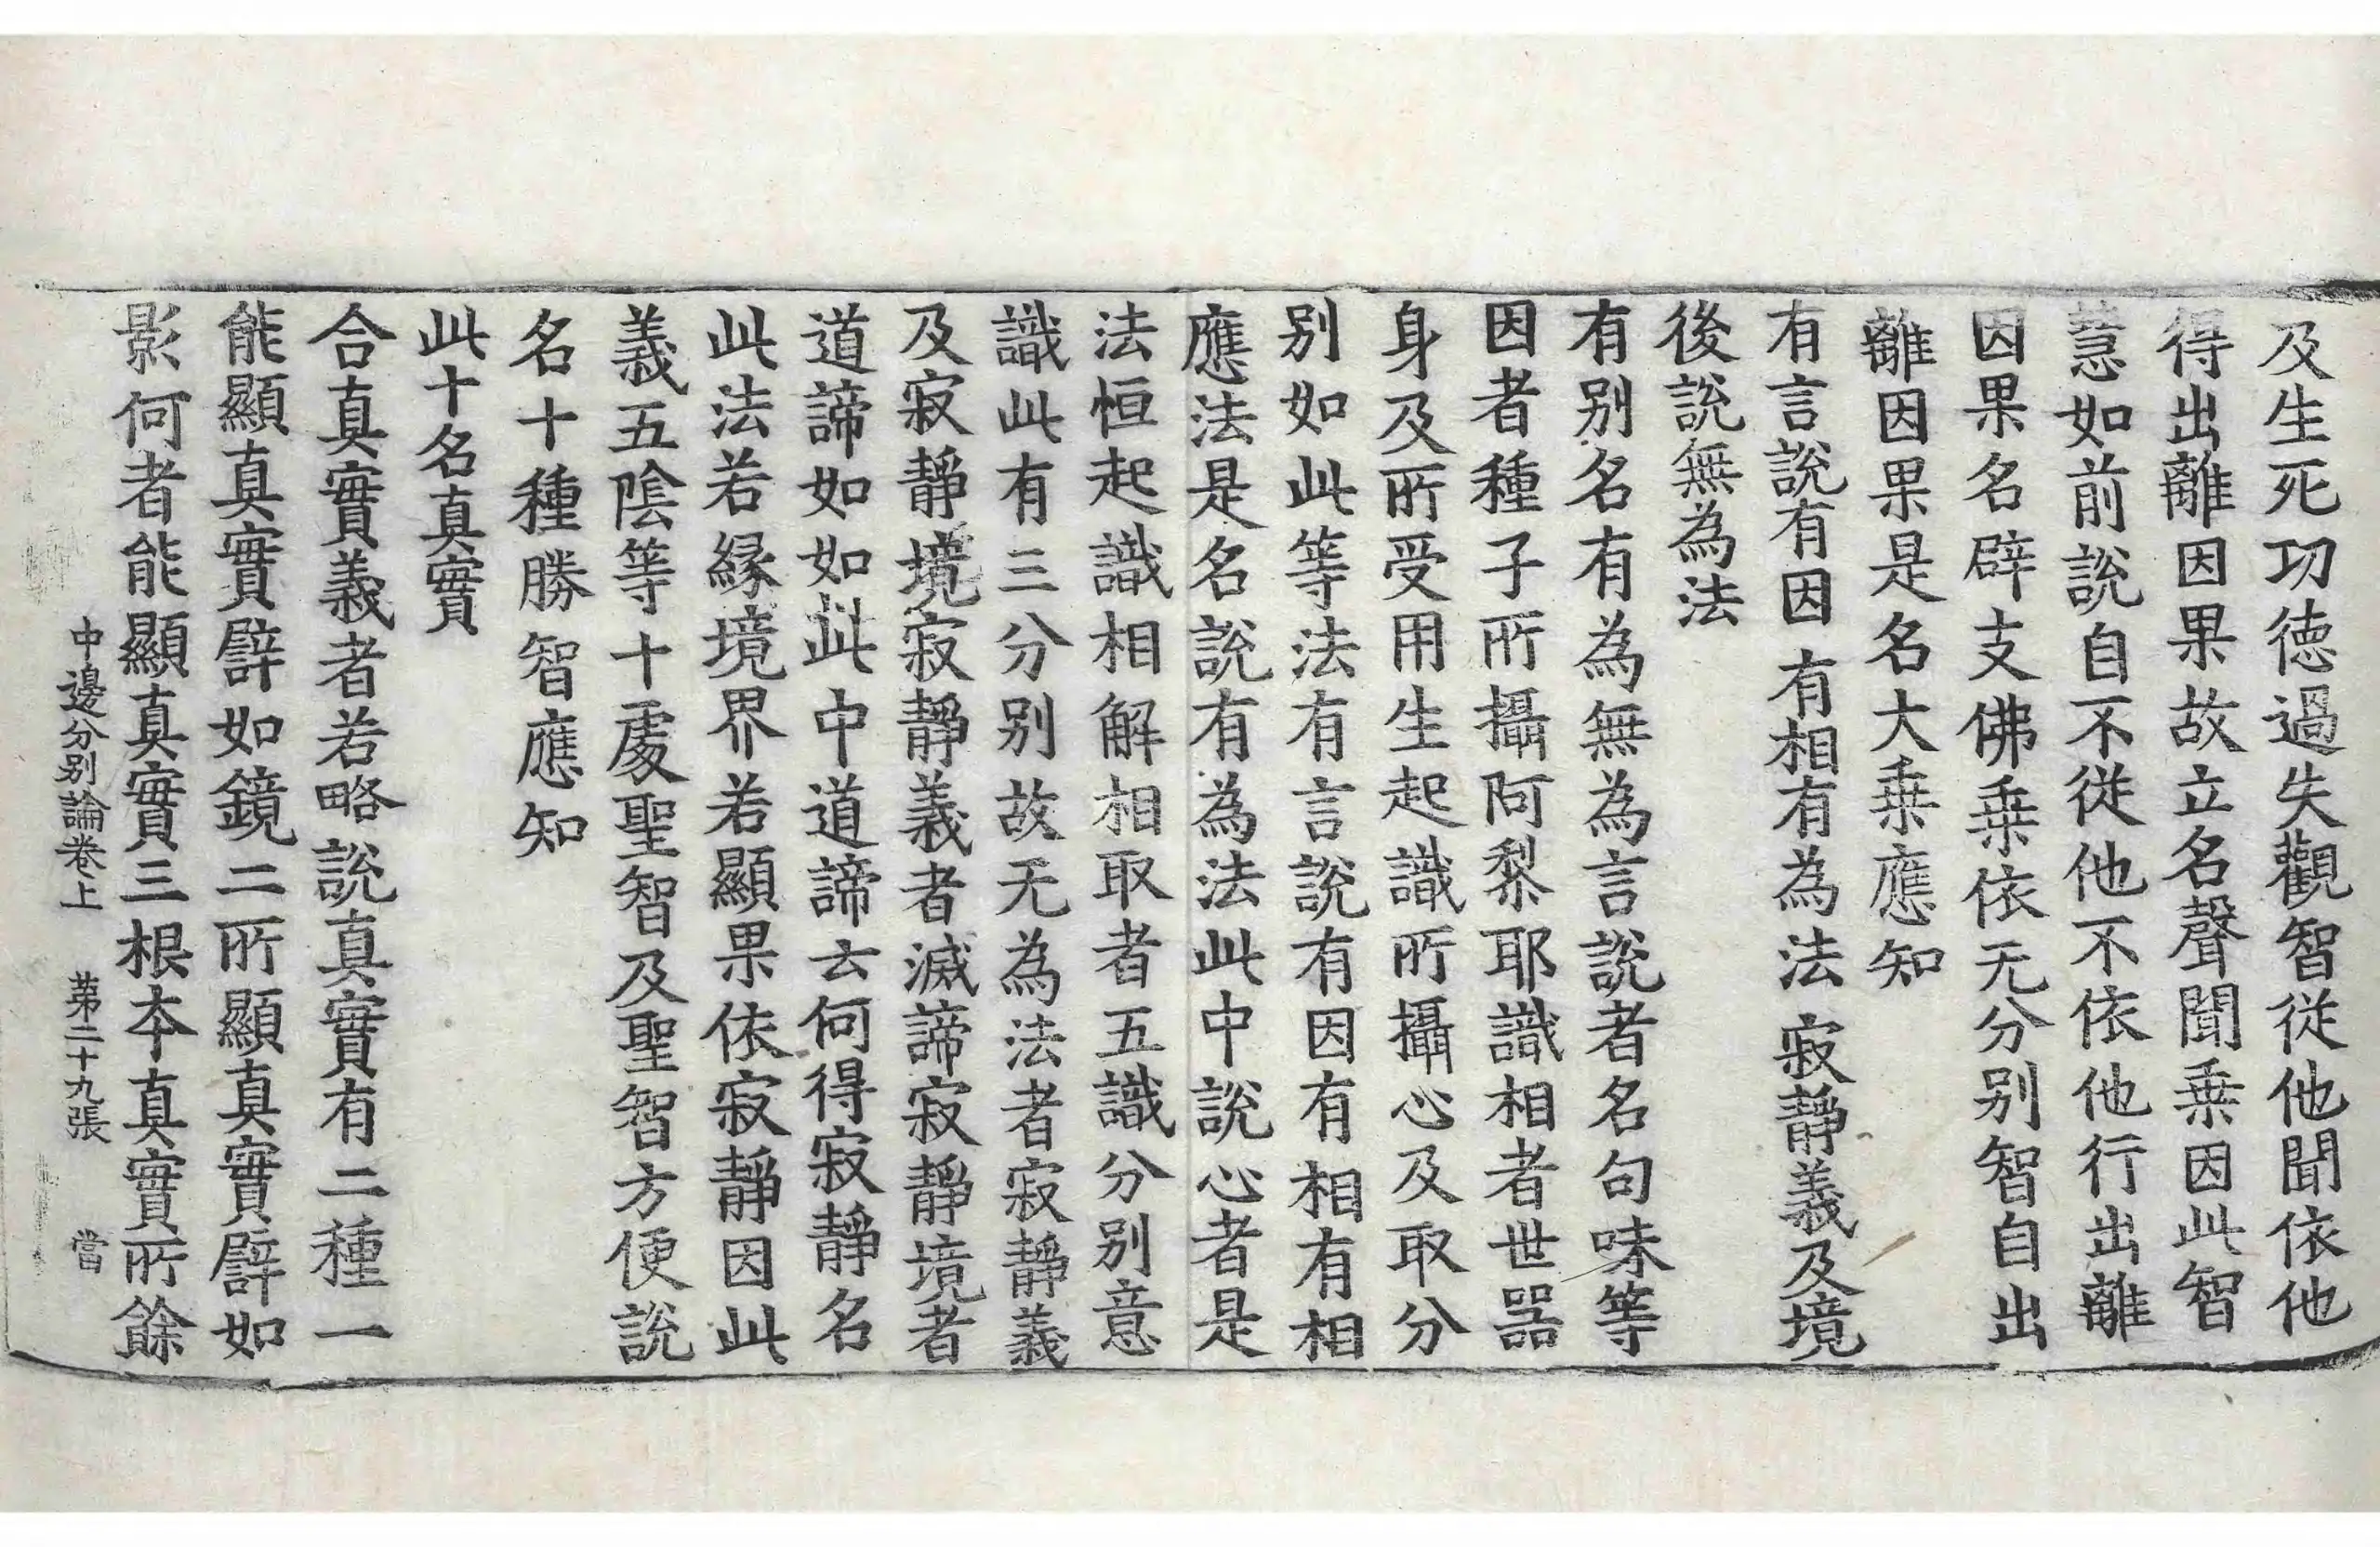 及生死功德過失觀智從他聞依他
得出離因果故立名聲聞乗因此智
慧如前說自不從他不依他行出離
因果名辟支佛乗依无分别智自出
離因果是名大乗應知
有言說有因 有相有為法 寂靜義及境
後說無為法
有别名有為無為言說者名句味等
因者種子所攝阿梨耶識相者世器
身及所受用生起識所攝心及取分
别如此等法有言說有因有相有相
應法是名說有為法此中說心者是
法恒起識相解相取者五識分别意
識此有三分别故无為法者寂靜義
及寂靜境寂靜義者滅諦寂靜境者
道諦如如此中道諦云何得寂靜名
此法若緣境界若顯果依寂靜因此
義五陰等十處聖智及聖智方便說
名十種勝智應知
此十名真實
合真實義者若略說真實有二種一
能顯真實譬如鏡二所顯真實譬如
影何者能顯真實三根本真實所餘
中邊分别論卷上 第二十九張 當